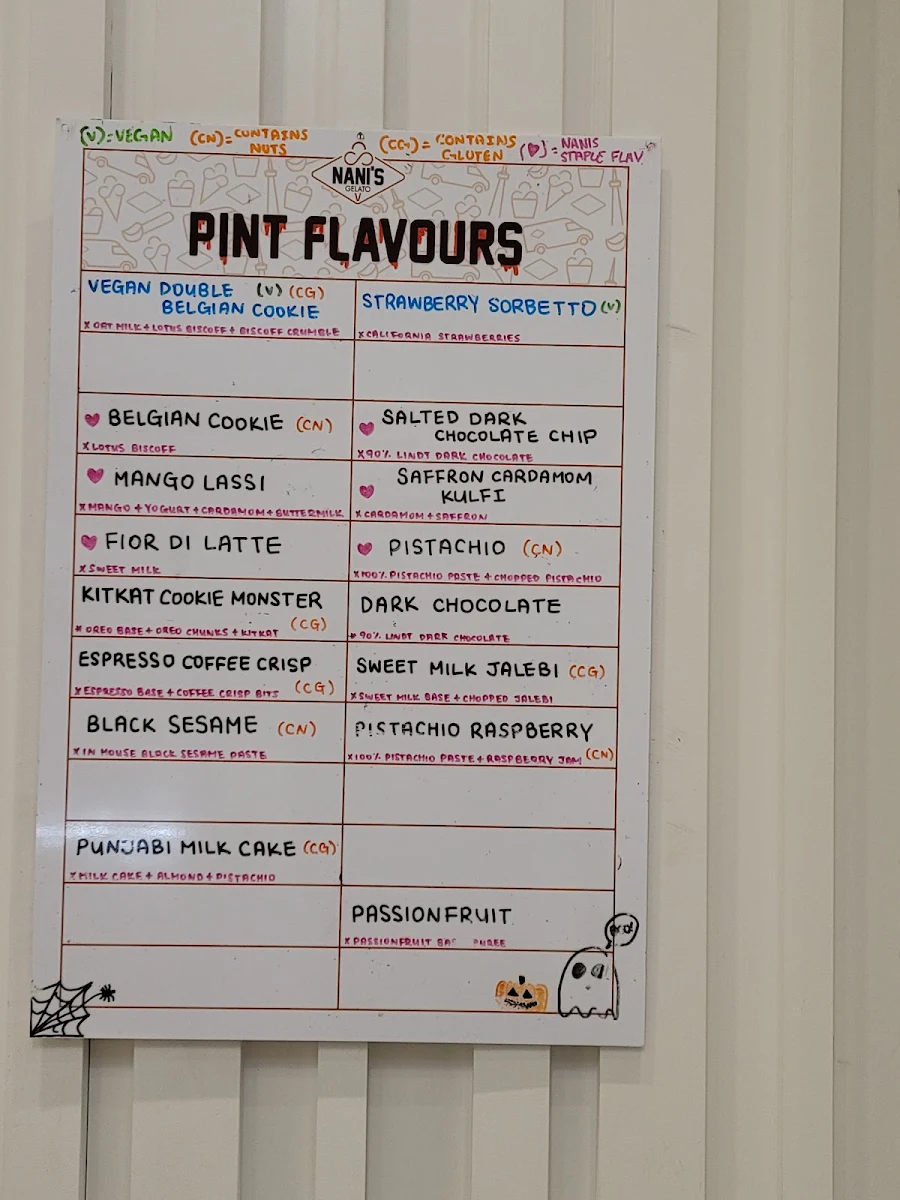 (V)=VEGAN (CN)=CONTAINS NUTS (CG)=CONTAINS GLUTEN (♥)=NANIS STAPLE FLAV
NANI'S
GELATO
PINT FLAVOURS
VEGAN DOUBLE (V) (CG)
BELGIAN COOKIE
x OAT MILK + LOTUS BISCOFF + BISCOFF CRUMBLE
STRAWBERRY SORBETTO (V)
x CALIFORNIA STRAWBERRIES
♥ BELGIAN COOKIE (CN)
x LOTUS BISCOFF
♥ SALTED DARK
CHOCOLATE CHIP
x 90% LINDT DARK CHOCOLATE
♥ MANGO LASSI
x MANGO + YOGURT + CARDAMOM + BUTTERMILK
♥ SAFFRON CARDAMOM
KULFI
x CARDAMOM + SAFFRON
♥ FIOR DI LATTE
x SWEET MILK
♥ PISTACHIO (CN)
x 100% PISTACHIO PASTE + CHOPPED PISTACHIO
KITKAT COOKIE MONSTER
(CG)
* OREO BASE + OREO CHUNKS + KITKAT
DARK CHOCOLATE
* 90% LINDT DARK CHOCOLATE
ESPRESSO COFFEE CRISP
x ESPRESSO BASE + COFFEE CRISP BITS (CG)
SWEET MILK JALEBI (CG)
x SWEET MILK BASE + CHOPPED JALEBI
BLACK SESAME (CN)
x IN HOUSE BLACK SESAME PASTE
PISTACHIO RASPBERRY
x 100% PISTACHIO PASTE + RASPBERRY JAM (CN)
PUNJABI MILK CAKE (CG)
x MILK CAKE + ALMOND + PISTACHIO
PASSIONFRUIT
x PASSIONFRUIT